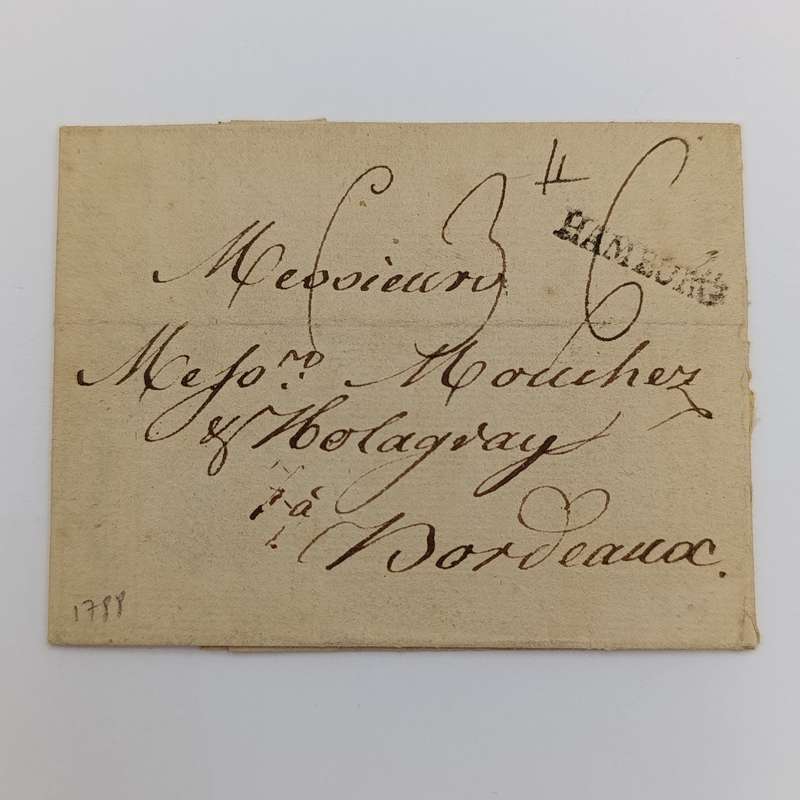 HAMBURG
36
Messieurs
Messrs. Mouchez
& Nolagray
à
Bordeaux.
1788